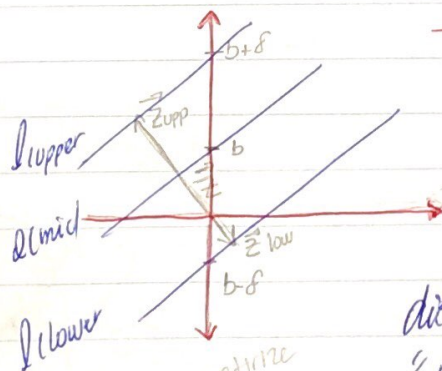 b+δ
z⃗upp
b
l(upper
l(mid
z⃗low
b-δ
l(lower